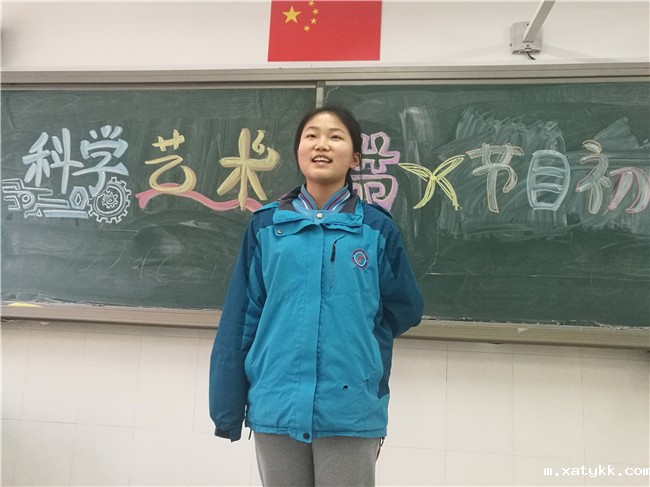 科学艺术 节目初
m.xatykk.com